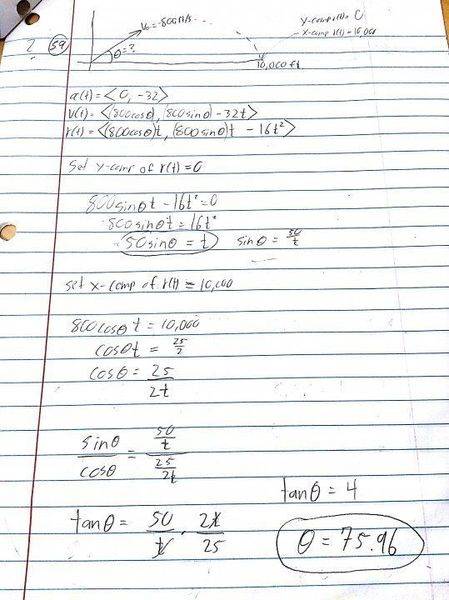 y-comp r(t) = 0
V₀ = 800 ft/s
x-comp r(t) = 10,000
? 59
θ = ?
10,000 ft
a(t) = <0, -32>
v(t) = <(800cosθ), (800sinθ) - 32t>
r(t) = <(800cosθ)t, (800sinθ)t - 16t²>
Set y-comp of r(t) = 0
800sinθt - 16t² = 0
800sinθt = 16t²
50sinθ = t sinθ = 50/t
set x-comp of r(t) = 10,000
800cosθt = 10,000
cosθt = 25/2
cosθ = 25/2t
sinθ/cosθ = (50/t)/(25/2t)
tanθ = 4
tanθ = 50/t · 2t/25
θ = 75.96